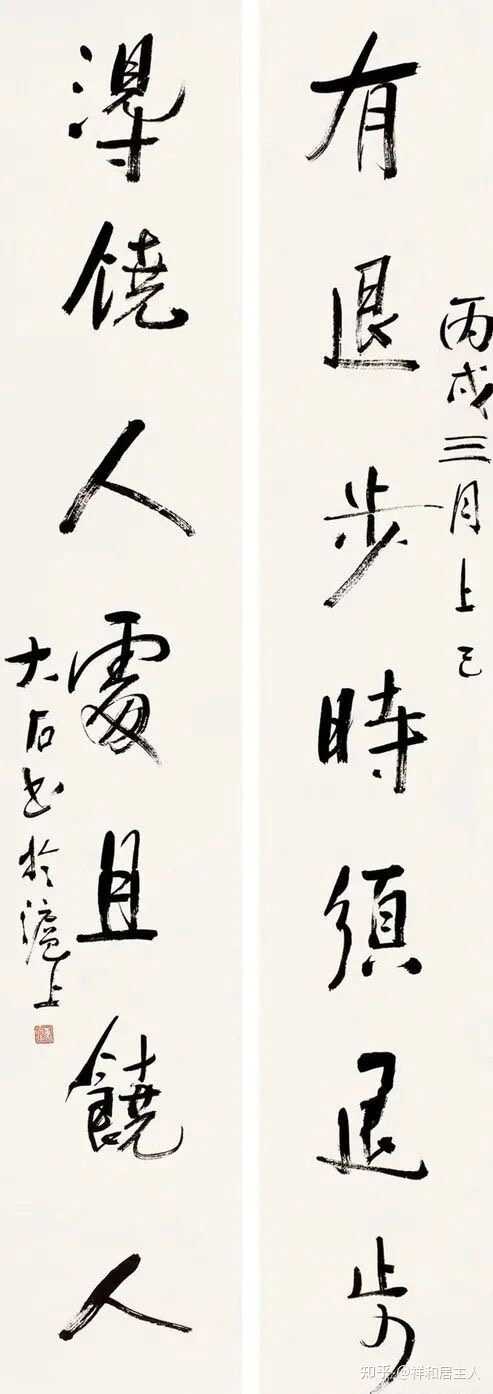 丙戌三月上巳
有退步時須退步
得饒人處且饒人
大石书於滬上
知乎 @祥和居主人